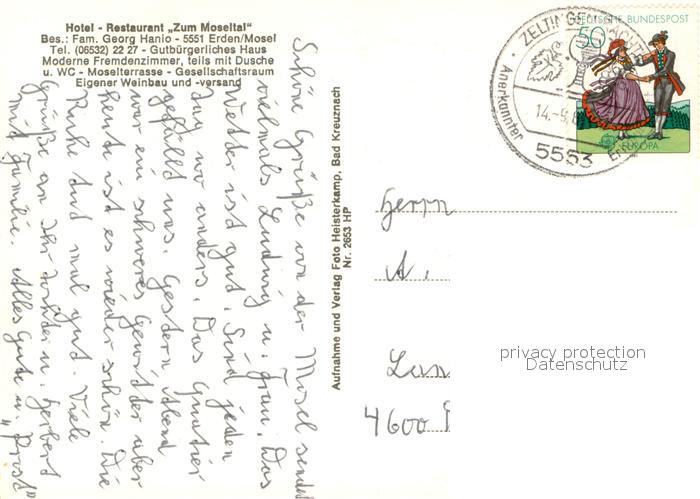 Hotel - Restaurant „Zum Moseltal“
Bes.: Fam. Georg Hanio - 5551 Erden/Mosel
Tel. (06532) 22 27 - Gutbürgerliches Haus
Moderne Fremdenzimmer, teils mit Dusche
u. WC - Moselterrasse - Gesellschaftsraum
Eigener Weinbau und -versand
Schöne Grüße von der Mosel sendet
vielmals Ludwig u. Frau. Das
Wetter ist gut. Sind jeden
Tag wo anders. Das Quatier
gefällt uns. Gestern Abend
war ein schweres Gewitter aber
heute ist es wieder schön. Die
Ruhe tut mal gut. Viele
Grüße an Ihr Tochter u. Herbert
mit Familie. Alles Gute u. „Prost“
Aufnahme und Verlag Foto Heisterkamp, Bad Kreuznach
Nr. 2653 HP
ZELTINGEN
Anerkannter
14.-9.
5553
DEUTSCHE BUNDESPOST
50
EUROPA
Herrn
A.
Lan
4600
privacy protection
Datenschutz